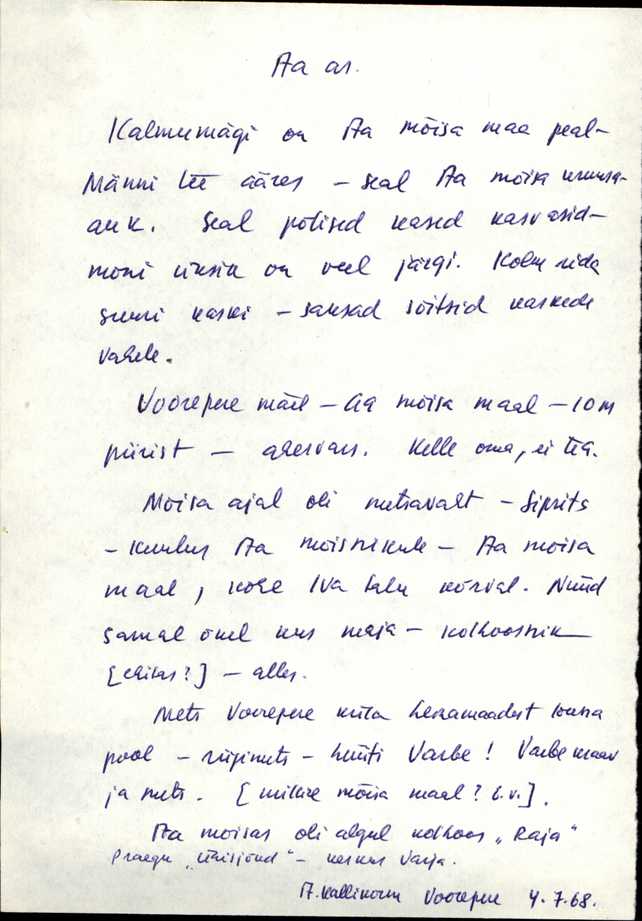 Aa as.
Kalmumägi on Aa mõisa maa peal-
Männi tee ääres - seal Aa mõisa
auk. Seal põlised kased kasvasid-
mõni üksik on veel järgi. Kolm rida
suuri kaski - saksad sõitsid kaskede
vahele.
Voorepere mäel - Aa mõisa maal - 10 m
piirist - ahervars. Kelle oma, ei tea.
Mõisa ajal oli metsavaht - Siprits
- kuulus Aa mõisnikule - Aa mõisa
maal, kohe Iva talu kõrval. Nüüd
samal õuel uus maja - kolhoosnik
[ehitas?] - alles.
Mets Voorepere küla heinamaadest lõuna
pool - riigimets - hüüti Varbe! Varbe maa
ja mets. [millise mõisa maal? E.V.].
Aa mõisas oli algul kolhoos "Raja"
praegu "Ühisjõud" - keskus Varja.
A. Kallikorm Voorepere 4.7.68.